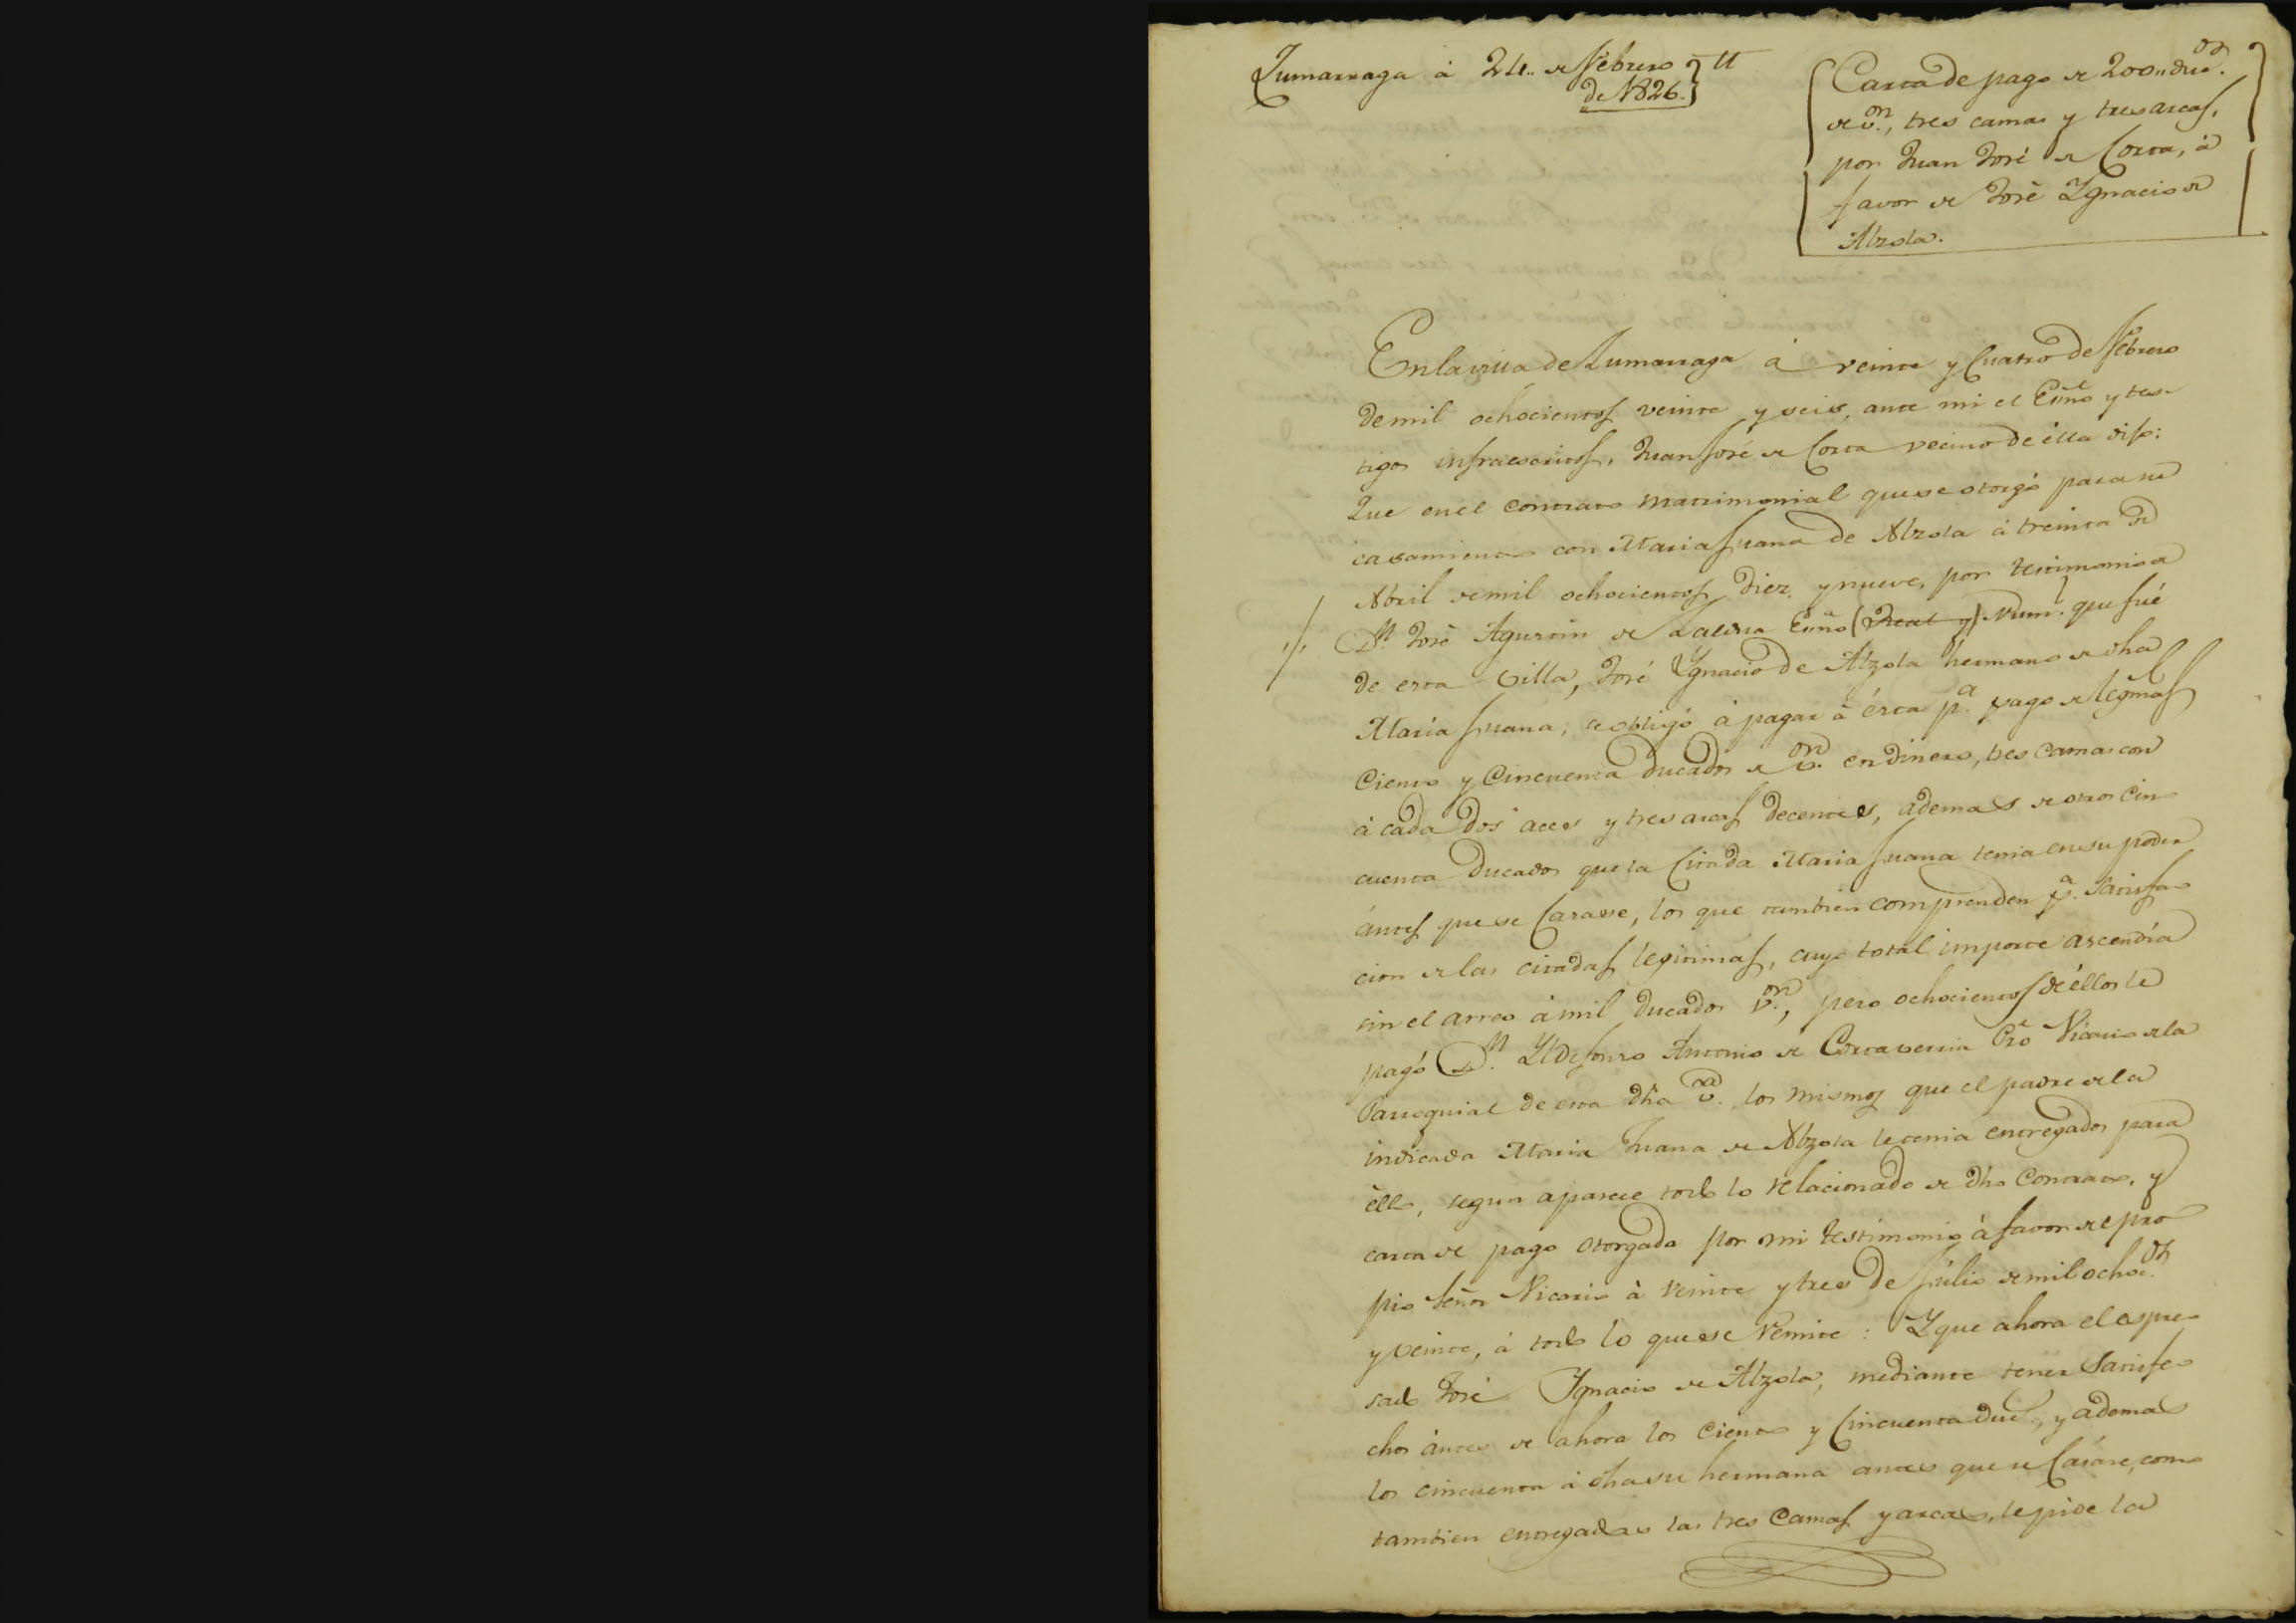 Zumarraga á 24.. de Febrero
de 1826.
Carta de pago de 200,, duc.os
de v.on, tres camas y tres arcas,
por Juan José de Corta, á
favor de José Ygnacio de
Alzola.
En la villa de Zumarraga á veinte y Cuatro de Febrero
de mil ochocientos veinte y seis, ante mi el Esñô y tes-
tigos infraescritos, Juan José de Corta vecino de élla dijo:
Que en el Contrato matrimonial que se otorgó para su
casamiento con Maria Juana de Alzola á treinta de
Abril de mil ochocientos diez y nueve, por testimonio de
D.n José Agustin de Esñô (Real y) Num.l que fué
de esta Villa, José Ygnacio de Alzola hermano de dha
María Juana, se obligó á pagar á ésta p.a pago de legmas
Ciento y Cincuenta ducados de v.on en dinero, tres Camas con
á cada dos aces y tres arcas decentes, ademas de otros Cin-
cuenta ducados que la Citada Maria Juana tenia en su poder
ántes que se Casase, los que tambien comprenden p.a Satisfa-
cion de las citadas legitimas, cuyo total importe ascendía
sin el arreo á mil ducados v.on, pero ochocientos de éllos le
pagó D.n Yldefonso Antonio de Pro Vicario de la
Parroquial de esta dha v.a los mismos que el padre de la
indicada Maria Juana de Alzola le tenia entregados para
éllo, segun aparece todo lo relacionado de dho Contrato, y
carta de pago otorgada por mi testimonio á favor del pro-
pio Señor Vicario á veinte y tres de Júlio de mil ochoc.tos
y veinte, á todo lo que se remite: Y que ahora el espre-
sado José Ygnacio de Alzola, mediante tener Satisfe-
chos ántes de ahora los Ciento y Cincuenta ducs, y ademas
los cincuenta á dha su hermana antes que se Casáse, como
tambien entregadas las tres Camas y arcas, le pide la